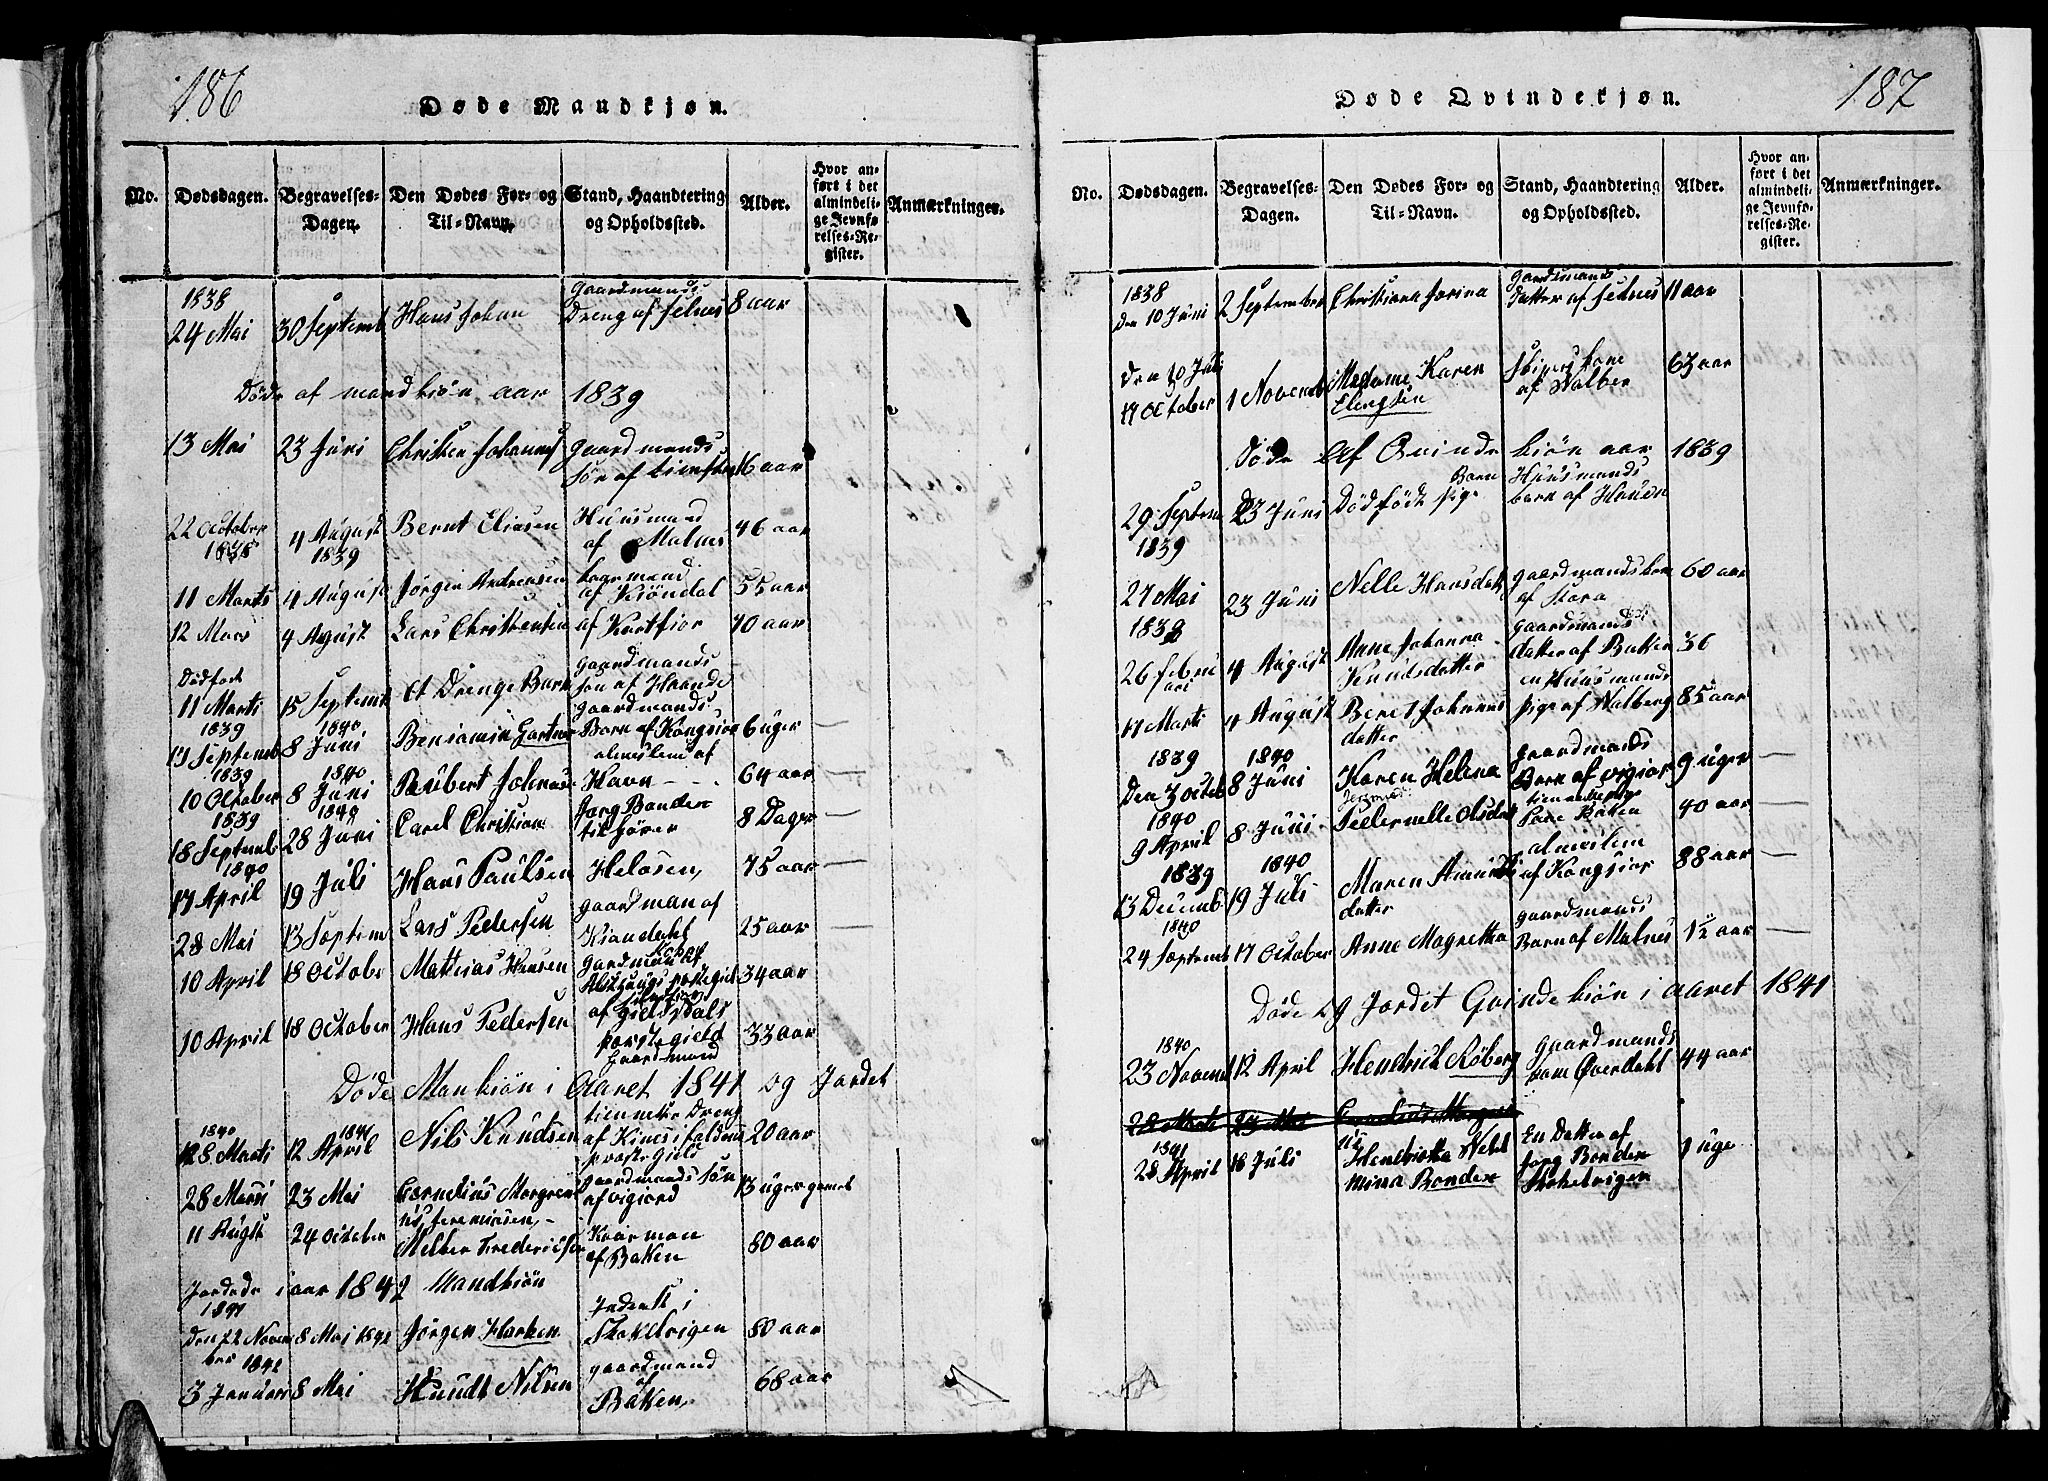 186
Døde Mandkjøn.
No.
Dødsdagen.
Begravelses-Dagen.
Den Dødes For- og Til-Navn.
Stand, Haandtering og Opholdssted.
Alder.
Hvor anført i det almindelige Jevnførelses-Register.
Anmærkninger.
1838
24 Mai 30 Septemb Hans Johan Gaardmands Dreng af Selnes 8 aar
Døde af mandkiön aar 1839
13 Mai 23 Juni Christen Johannes Gaardmands Sön af 16 aar
22 October 1838 4 August 1839 Bernt Eliasen Huusmand af Malnes 46 aar
11 Marts 4 August Jørgen Andreasen af Kiöndal 55 aar
12 Mars 4 Agust Lars Christensen af Kortfior 70 aar
Dödfod
11 Marti 15 Septemb Et Drenge Barn Gaardmands sön af Haande
1839 1840
17 Septemb 8 Juni Benjamin Gartner Gaardmands Barn af Kongsior 6 uger —
1839 1840
10 October 8 Juni Rubert Johnase almeslem af Havn 64 aar —
1839 1840
18 Septemb 28 Juni Carel Christian Jørg Bonder til hører 8 Dager —
1840
17 April 19 Juli Hans Paulsen Helosen, 75 aar —
28 Mai 13 Septem Lars Pedersen gaardman af Kiøndahl 25 aar —
10 April 18 October Mathias Hansen Gardman af Alsthaugs præstegield 34 aar
10 April 18 October Hans Pedersen af Gieldsdals præstegield Gaardmand 33 aar
Døde Mankiön i Aaret 1841 og Jordet
1840 1841
28 Marti 12 April Nils Knudsen tienneste Dreng af præstegield 20 aar
28 Marsi 23 Mai Cornelius Margrenus Jeremiasen, Gaardmands sön af vigiord 13 uger gamel
11 Augst 24 october Melker Frederiksen Kaarman af Baken 80 aar
Jordede i aar 1842 Mandkiön
1841
Den 22 November 8 Mai 1842 Jørgen Harken Inderst i Stokelvigen 80 aar
1842
3 Januari 8 Mai Knudt Nilsen gaardmand af Baken, 68 aar
187
Døde Qvindekjøn.
No.
Dødsdagen.
Begravelses-Dagen.
Den Dødes For- og Til-Navn.
Stand, Haandtering og Opholdssted.
Alder.
Hvor anført i det almindelige Jevnførelses-Register.
Anmærkninger.
1838
Den 10 Juni 2 September Christiana Jorina Gaardsmands Datter af Selnes 11 aar
Den 10 Juli
17 October 1 Novemb Madame Karen Elengsen Skipers kone af Valber 63 aar
Døde Af Qvinde kiön aar 1839
29 Septem 1839 23 Juni Dødfödt pige Barn Huusmands barn af Hauen
27 Mai 1839 23 Juni Nelle Hansdatt gaardmandskone af Stora 60 aar
26 Februari 4 August Anne Johanna Knudsdatter Gaardsmands datter af Baken 36
17 Marti 4 August Beret Johannes datter en Huusmands pige af Valberg 85 aar
1839 1840
Den 3 octob 8 Juni Karen Helena Gaardmands Barn af vigior 9 uger —
1840
9 April 8 Juni Pedernelle Olsdatt Pae Baken 40 aar —
1839 1840
13 Decemb 19 Juli Maren Amunds datter almeslem af Kongsior 88 aar —
1840
24 Septemb 17 October Anne Magretha gaardsmands Barn af Malnes 1½ aar —
Døde og Jordet Qvinde kiön i aaret 1841
1840
23 Novemb 12 April Hendrik Röberg Gaardmands Øverdahl 44 aar
28 Marti 23 Mai Cornelius Margrenus
1841
28 April 18 Juli Hendrikke Vebel mina Bonder En Datter af Jørg Bonder Stokelvigen 1 uge